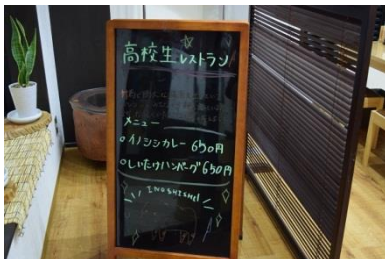 高校生レストラン
メニュー
○イノシシカレー 650円
○しいたけハンバーグ650円
INOSHISHI